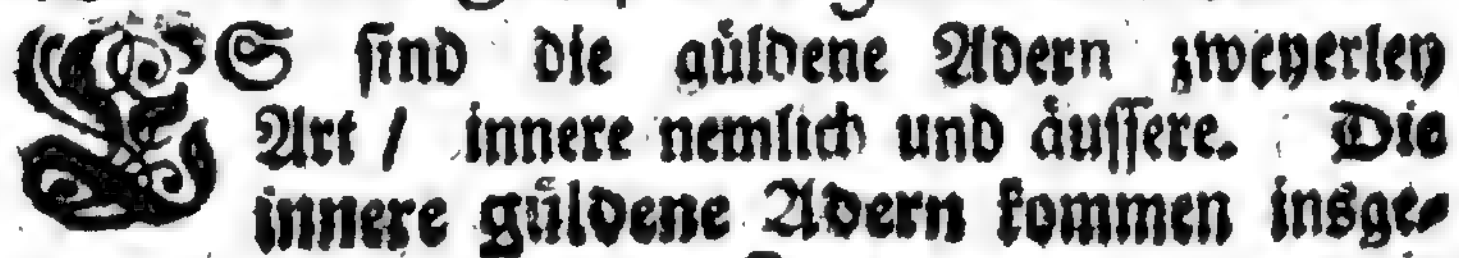 ES sind die güldene Adern zweyerley
Art / innere nemlich und äussere. Die
innere güldene Adern kommen insge-